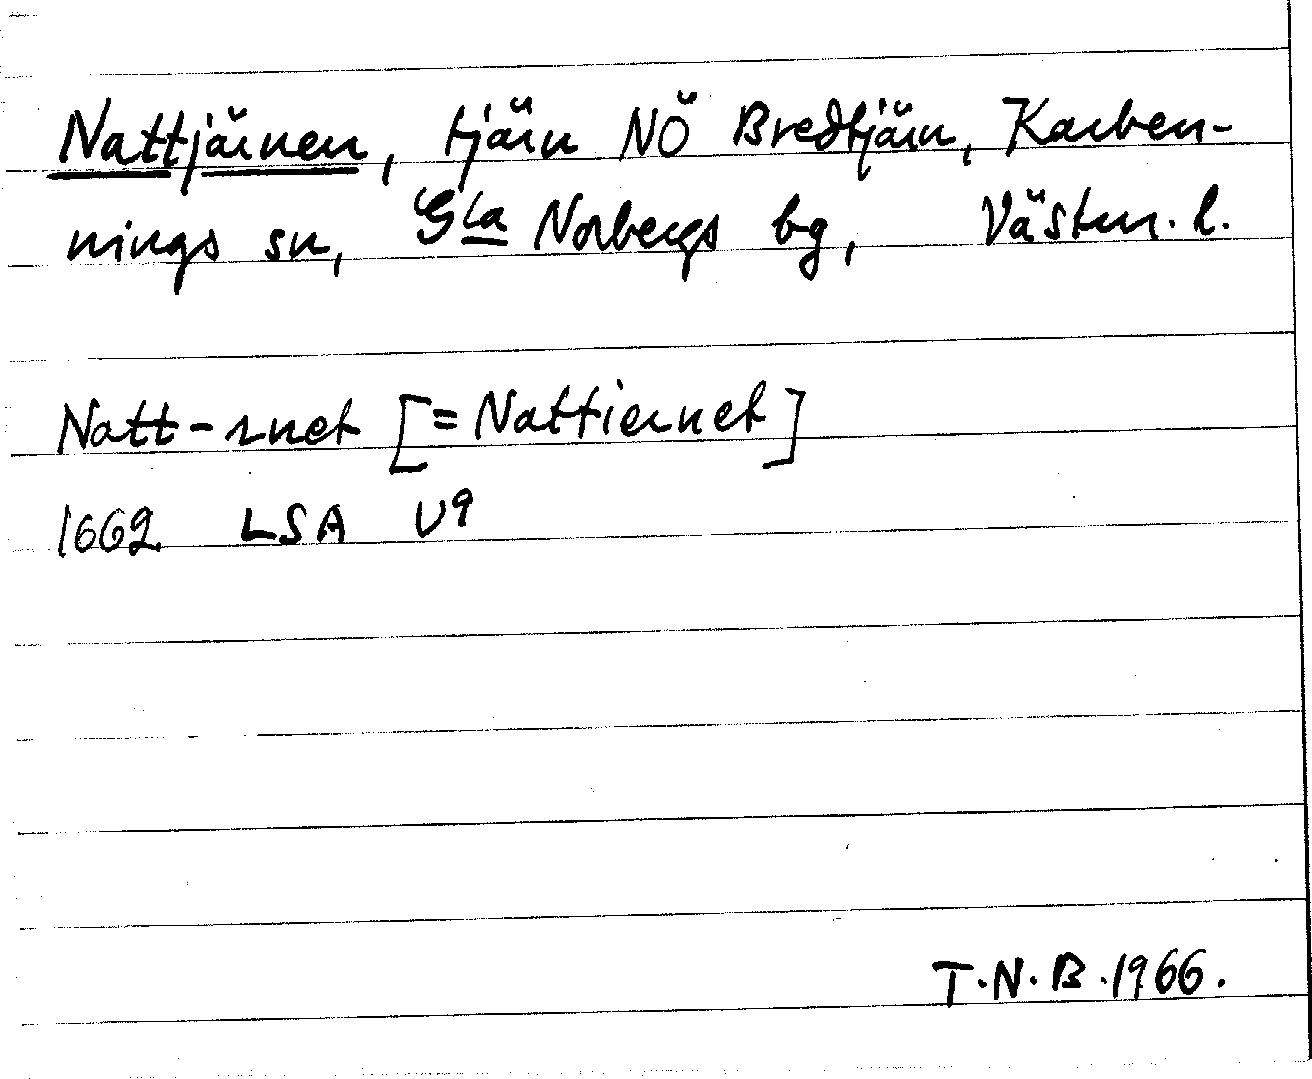 Nattjärnen, tjärn NÖ Bredtjärn, Karben-
nings sn, Gla Norbergs bg, Västm. l.
Natt-rnet [= Nattiernet]
1662 LSA U9
T.N.B. 1966.